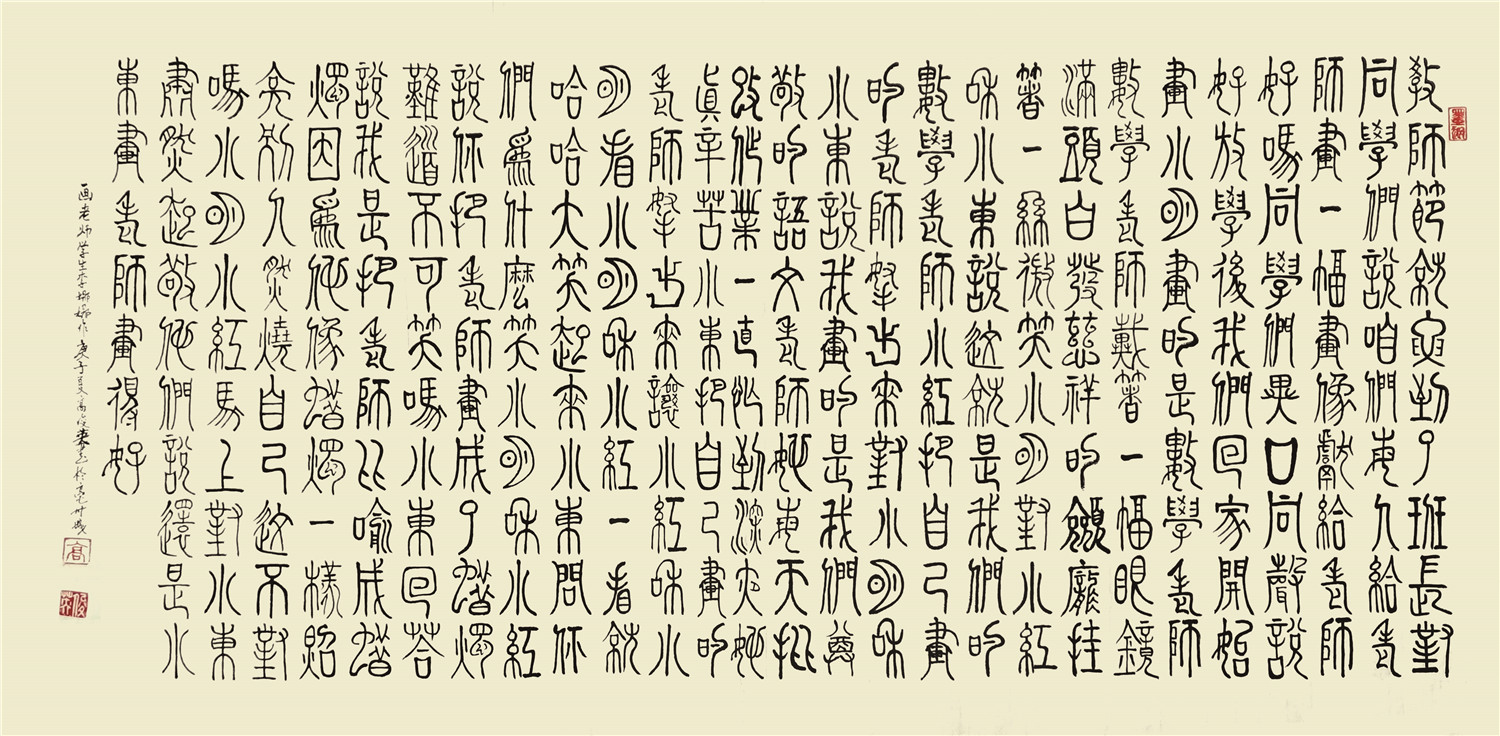 教師節就要到了班長對
同學們說咱們每人給老
師畫一幅畫像獻給老師
好嗎同學們異口同聲說
好放學後我們回家開始
畫小明畫的是數學老師
數學老師戴著一幅眼鏡
滿頭白發慈祥的臉龐挂
著一絲微笑小明對小紅
和小東說這就是我們的
數學老師小紅把自己畫
的老師拿出來對小明和
小東說我畫的是我們尊
敬的語文老師她每天批
改作業一直忙到深夜她
真辛苦小東把自己畫的
老師拿出來讓小紅和小
明看小明和小紅一看就
哈哈大笑起來小東問你
們為什麼笑小明和小紅
說你把老師畫成了蠟燭
難道不可笑嗎小東回答
說我是把老師比喻成蠟
燭因為他像蠟燭一樣照
亮別人燃燒自己這不對
嗎小明小紅馬上對小東
肅然起敬他們說還是小
東畫老師畫得好
画老师学生李娜作庚子夏高俊
高